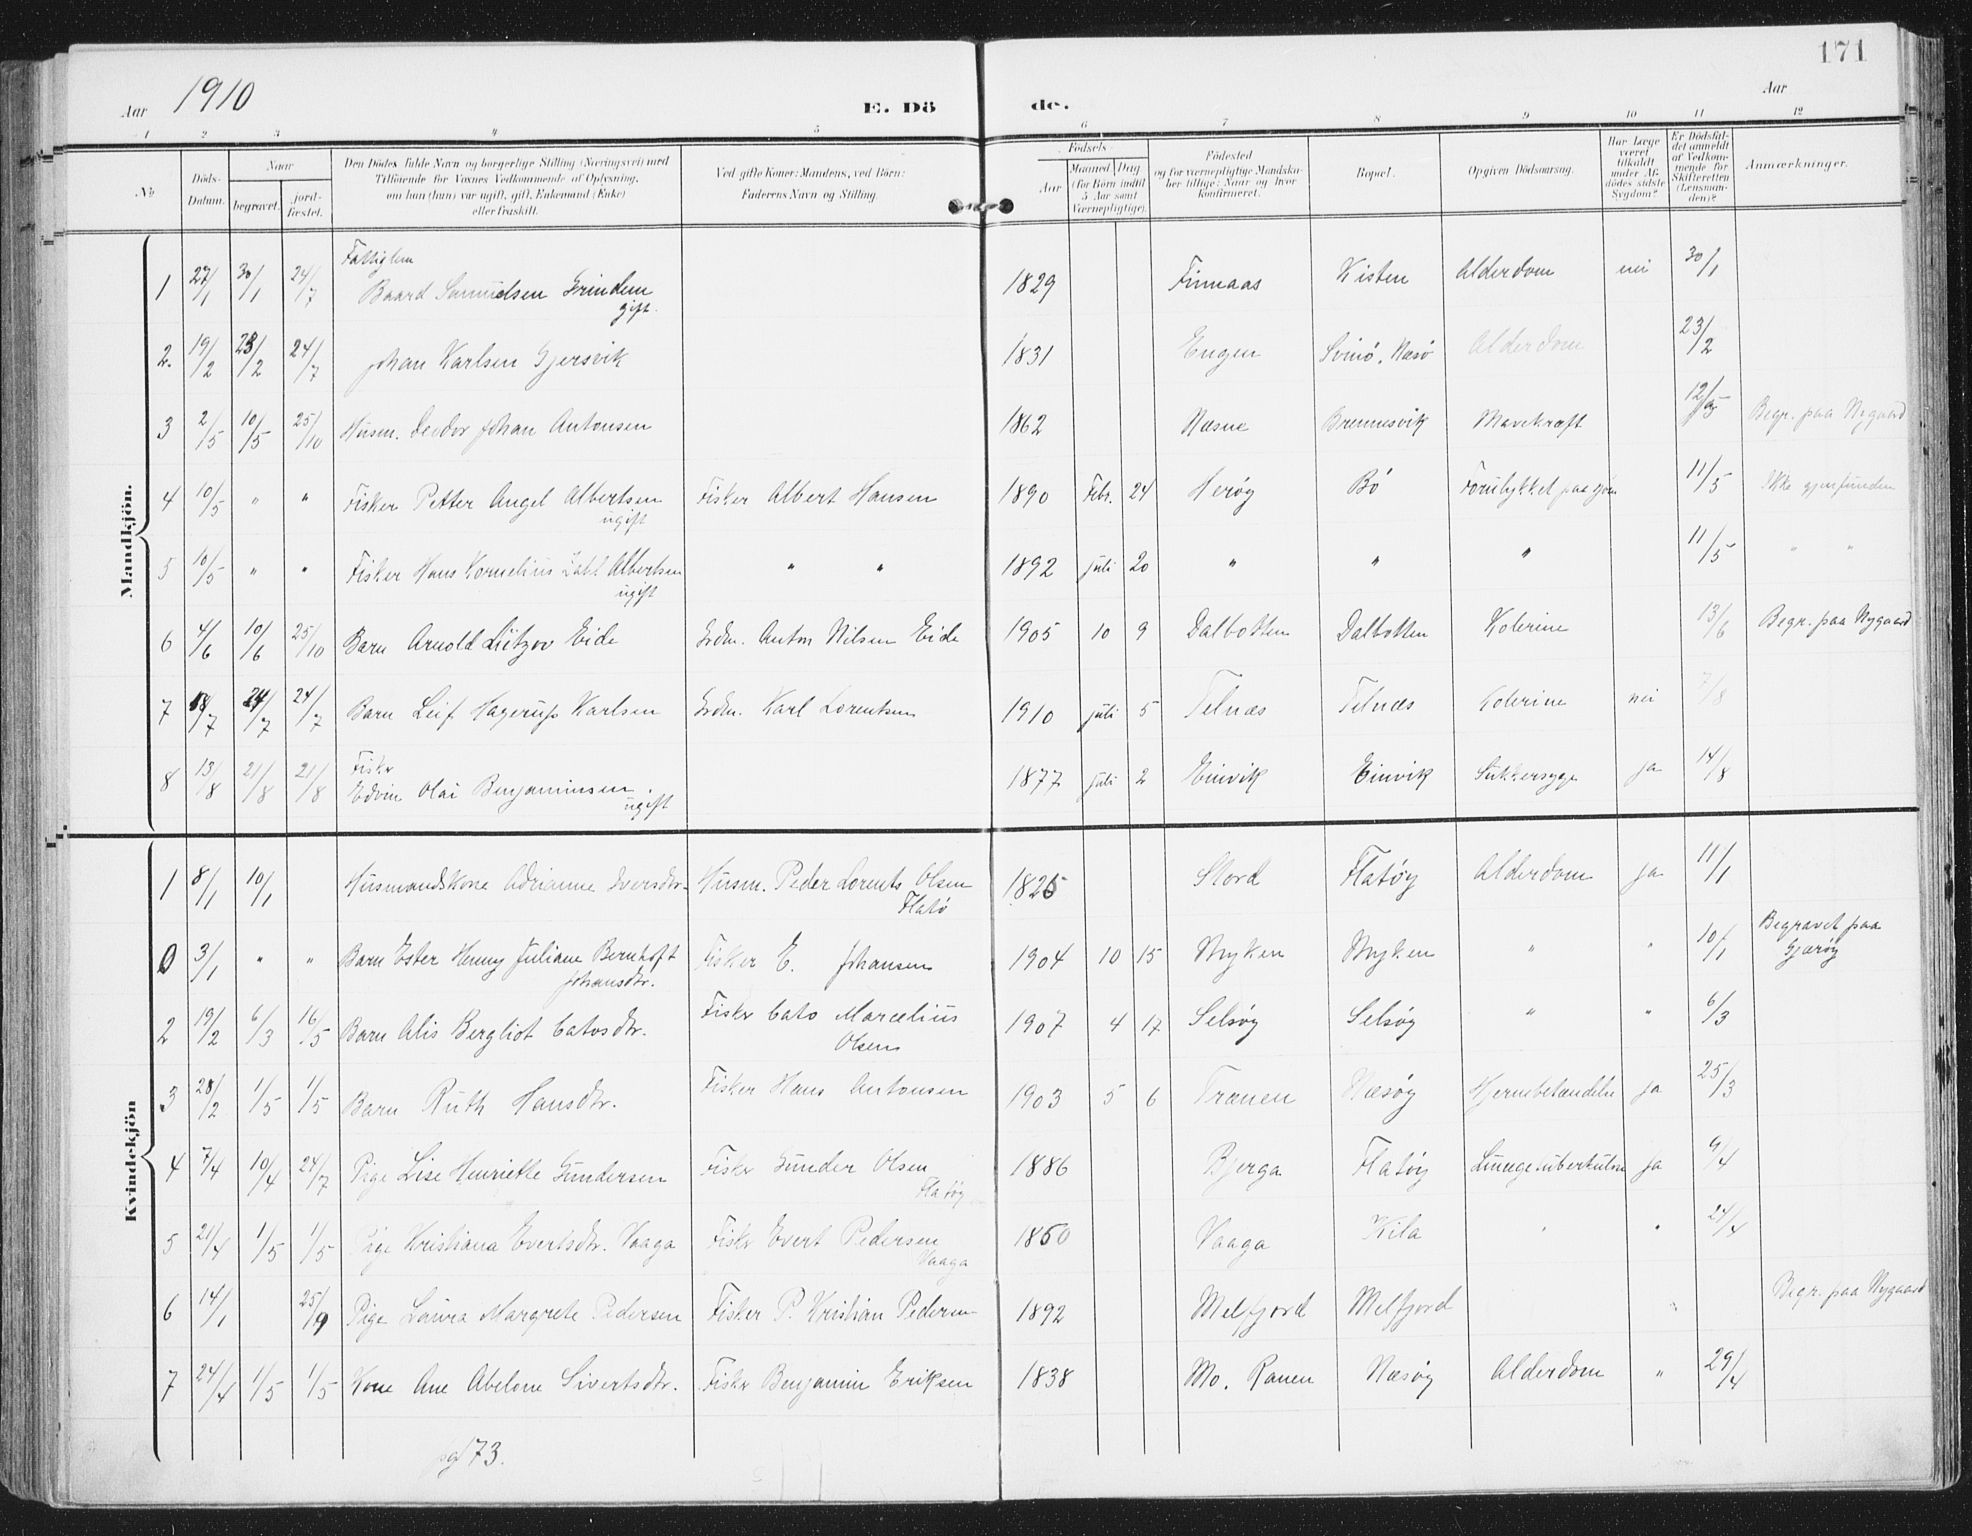 171
Aar 1910 E. Dö de. Aar
1 2 3 4 5 6 7 8 9 10 11 12
No
Döds-Datum.
Naar
begravet.
jord-fæstet.
Den Dödes fulde Navn og borgerlige Stilling (Næringsvei) med
Tilföiende for Voxnes Vedkommende af Oplysning,
om han (hun) var ugift, gift, Enkemand (Enke)
eller fraskilt.
Ved gifte Koner: Mandens, ved Börn:
Faderens Navn og Stilling.
Födsels-
Aar Maaned Dag
(for Börn indtil
5 Aar samt
Værnepligtige).
Födested
og for værnepligtige Mandska-
ber tillige: Naar og hvor
konfirmeret.
Bopæl.
Opgiven Dödsaarsag.
Har Læge
været
tilkaldt
under Af-
dödes sidste
Sygdom?
Er Dödsfal-
det anmeldt
af Vedkom-
mende for
Skifteretten
(Lensman-
den)?
Anmærkninger.
Mandkjön.
Fattiglem
1 27/1 30/1 24/7 Baard Samuelsen Grindem 1829 Finnaas Kisten Alderdom nei 30/1
gift.
2. 19/2 23/2 24/7 Johan Karlsen Gjersvik 1831 Engen Svinö, Næsö Alderdom 23/2
3 2/5 10/5 25/10 Husm. Johan Antonsen 1862 Næsne Brennesvik Mavekræft 12/5 Begr. paa Nygaard
4 10/5 " " Fisker Petter Angel Albertsen Fisker Albert Hansen 1890 Febr. 24 Herøy Bö Forulykket paa sjöen 11/5 Ikke gjenfunden
ugift
5 10/5 " " Fisker Hans Kornelius Albertsen " " 1892 juli 20 " " " 11/5 " "
ugift
6 4/6 10/6 25/10 Barn Arnold Lützov Eide Grdm. Anton Nilsen Eide 1905 10 9 Dalbotten Dalbotten Kolerine 13/6 Begr. paa Nygaard
7 18/7 24/7 24/7 Barn Leif Hagerup Karlsen Grdm. Karl Lorentsen 1910 juli 5 Telnæs Telnæs Kolerine nei 7/8
Fisker
8 13/8 21/8 21/8 Edvin Olai Benjaminsen. 1877 juli 2 Einvik Einvik Sukkersyge ja 14/8
ugift
Kvindekjön
1 8/1 10/1 Husmandskone Adrianne Iversdtr. Husm. Peder Lorents Olsen 1825 Stord Flatøy Alderdom ja 11/1
Flatö
0 3/1 " " Barn Ester Henny Juliane Bernhoft Fisker E. Johansen 1904 10 15 Myken Myken " " 10/1 Begravet paa
Johansdtr. Gjærøy
2 19/2 6/3 16/5 Barn Alis Bergliot Catosdtr. Fisker Cato Marcelius 1907 4 17 Selsøy Selsøy " " 6/3
Olsen
3 28/2 1/5 1/5 Barn Ruth Hansdtr. Fisker Hans Antonsen 1903 5 6 Trænen Næsøy Hjernebetændelse ja 25/3
4 7/4 10/4 24/7 Pige Lise Henriette Gundersen Fisker Gunder Olsen 1886 Bjerga Flatøy Lungetuberkulose ja 9/4
Flatøy
5 21/4 1/5 1/5 Pige Kristiana Evertsdtr. Vaaga Fisker Evert Pedersen 1860 Vaaga Kila " " 24/4
Vaaga
6 14/1 25/9 Pige Laura Margrete Pedersen Fisker P. Kristian Pedersen 1892 Melfjord Melfjord " Begr. paa Nygaard
7 24/4 1/5 1/5 Kone Ane Abelone Sivertsdtr. Fisker Benjamin Eriksen 1838 Mo. Ranen Næsøy Alderdom " 29/4
pg 173.